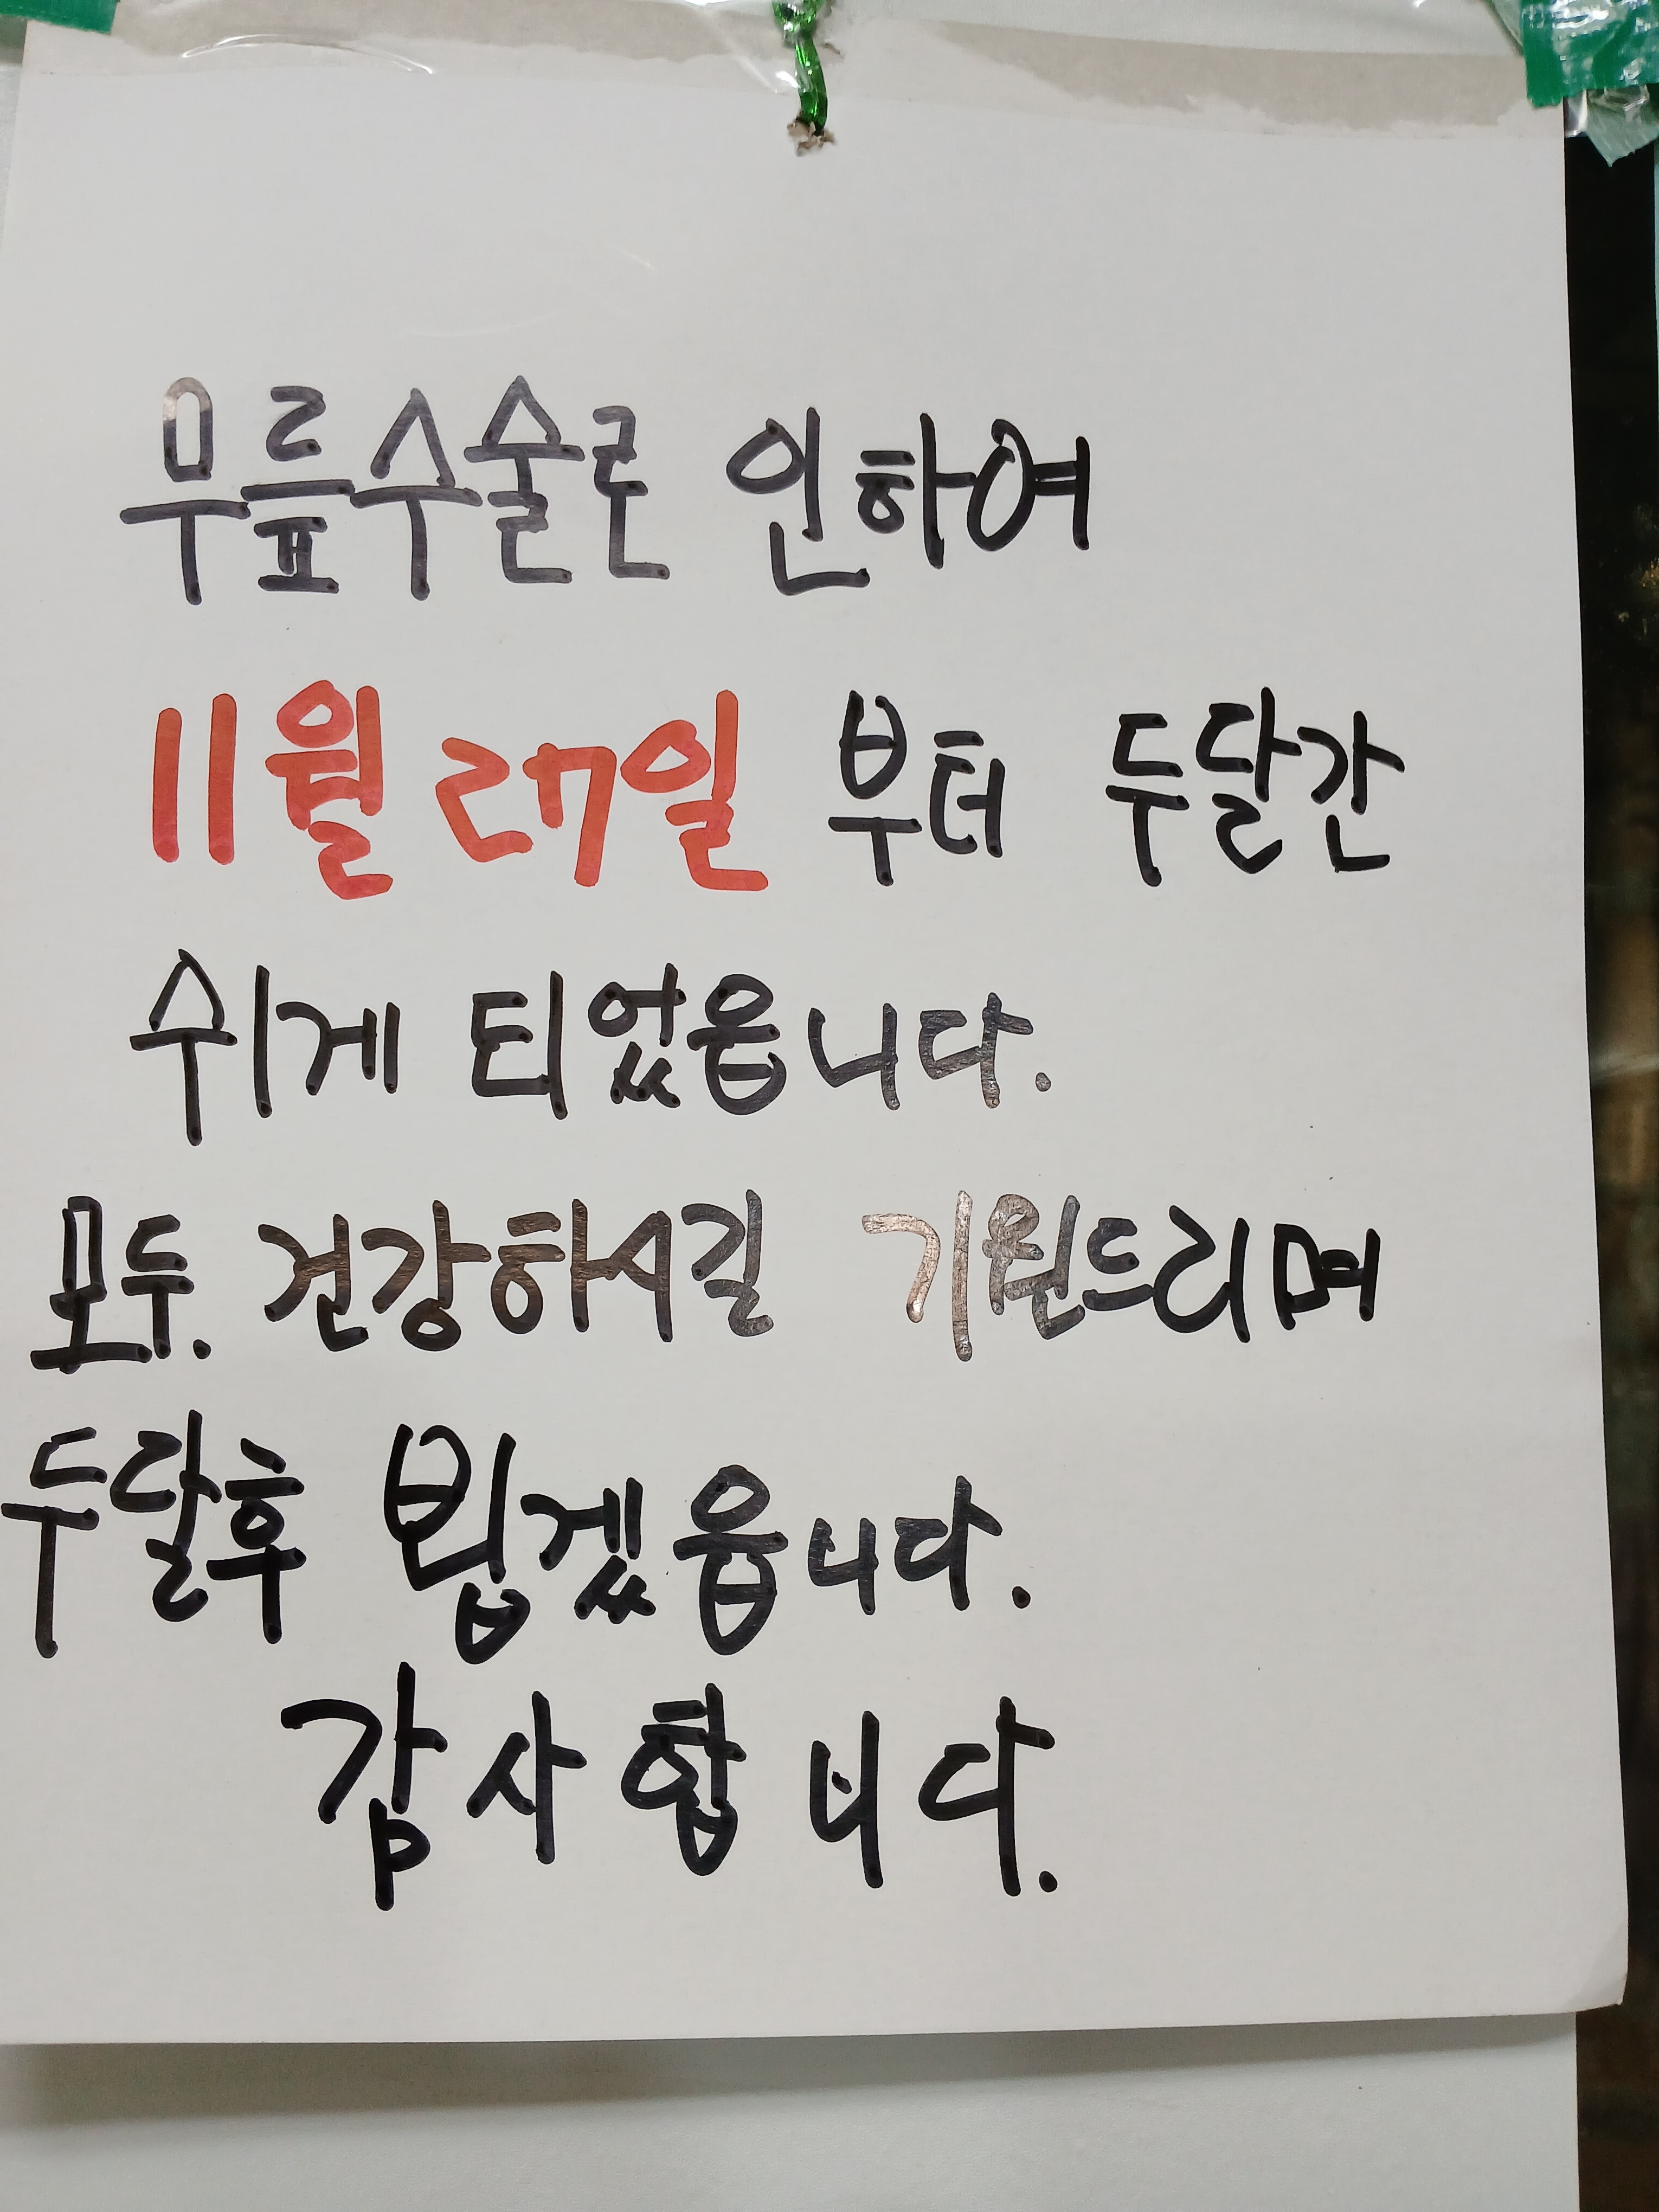 무릎수술로 인하여
11월 27일 부터 두달간
쉬게 티었읍니다.
모두. 건강하시길 기원드리며
두달후 뵙겠읍니다.
감사합니다.